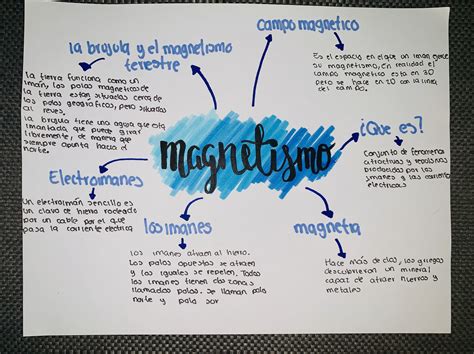 campo magnetico
Es el espacio en el que un iman ejerce
su magnetismo, en realidad el
campo magnetico esta en 3D
pero se hace en 2D con la linea
del campo.
la brujula y el magnetismo
terrestre
la tierra funciona como un
imán, los polos magneticos de
la tierra estan situados cerca de
los polos geograficos, pero situados
al reves.
la brujula tiene una aguja que esta
imantada que puede girar
libremente, de manera que
siempre apunta hacia el
norte.
magnetismo
¿Que es?
Conjunto de fenomenos
atractivos y repulsivos
producidos por los
imanes y las corrientes
electricas
Electroimanes
un electroimán sencillo es
un clavo de hierro rodeado
por un cable por el que
pasa la corriente electrica
los imanes
los imanes atraen al hierro.
Los polos opuestos se atraen
y los iguales se repelen. Todos
los imanes tienen dos zonas
llamadas polos. se llaman polo
norte y polo sur
magnetia
Hace más de 2000, los griegos
descubrieron un mineral
capaz de atraer hierros y
metales